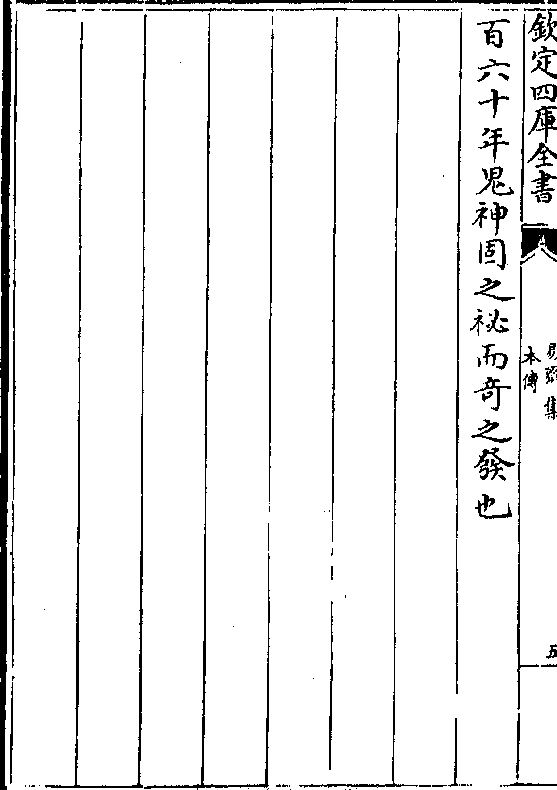 欽定四庫全書
本傳
五
百六十年鬼神固之祕而奇之發也